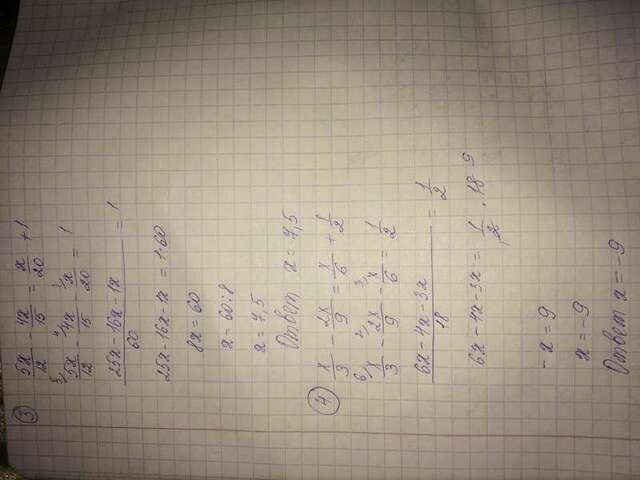 ③ 5x/12 - 4x/15 = x/20 + 1
⁵⁾5x/12 - ⁴⁾4x/15 - ¹⁾x/20 = 1
25x - 16x - 1x / 60 = 1
25x - 16x - 1x = 1·60
8x = 60
x = 60:8
x = 7,5
Ответ x = 7,5
④ x/3 - 2x/9 = x/6 + 1/2
⁶⁾x/3 - ²⁾2x/9 - ³⁾x/6 = 1/2
6x - 4x - 3x / 18 = 1/2
6x - 4x - 3x = 1/2 · 18 9
-x = 9
x = -9
Ответ x = -9